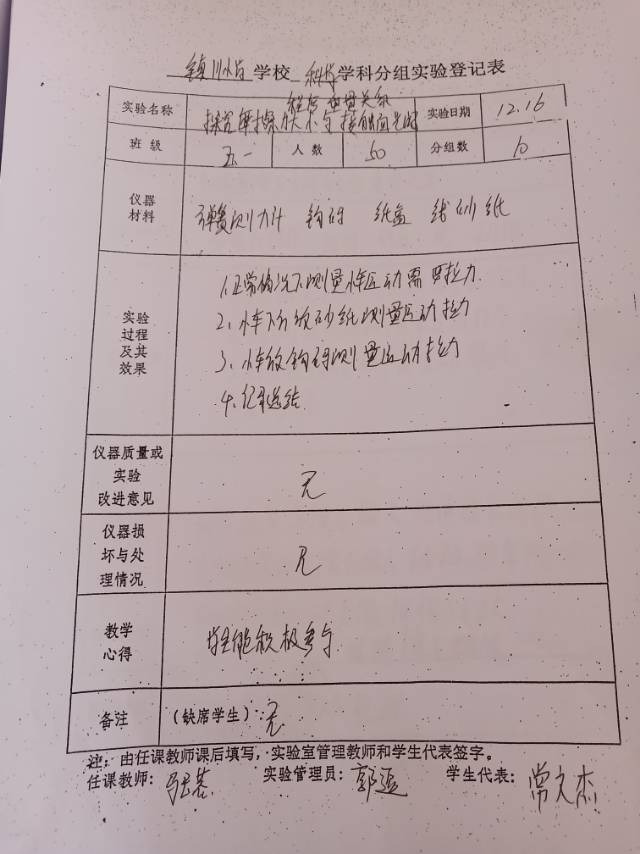 学校 科学 学科分组实验登记表
实验名称 程度重量关系
探究摩擦力大小与接触面光滑
实验日期 12.16
班级 五一 人数 50 分组数 10
仪器材料 弹簧测力计 钩码 纸盒 线 砂纸
实验过程及其效果
1.正常情况下测量 运动需要拉力
2、 下 放砂纸测量运动拉力
3、 放钩码测量运动拉力
4、记录总结
仪器质量或实验改进意见 无
仪器损坏与处理情况 无
教学心得 学生能积极参与
备注 (缺席学生):无
注:由任课教师课后填写,实验室管理教师和学生代表签字。
任课教师: 实验管理员:郭 学生代表:常文杰